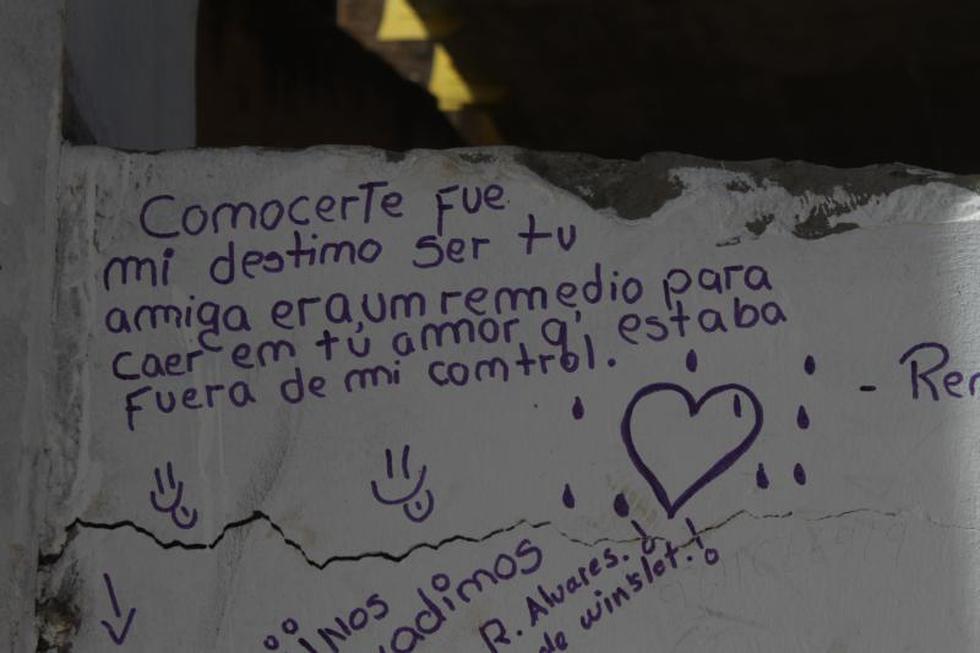 Comocerte Fue
mi destimo ser tu
amiga era um remmedio para
caer em tu ammor q' estaba
Fuera de mi comtrol.
- Ren
¡¡Nos
adimos
R. Alvares.
de winslet.!